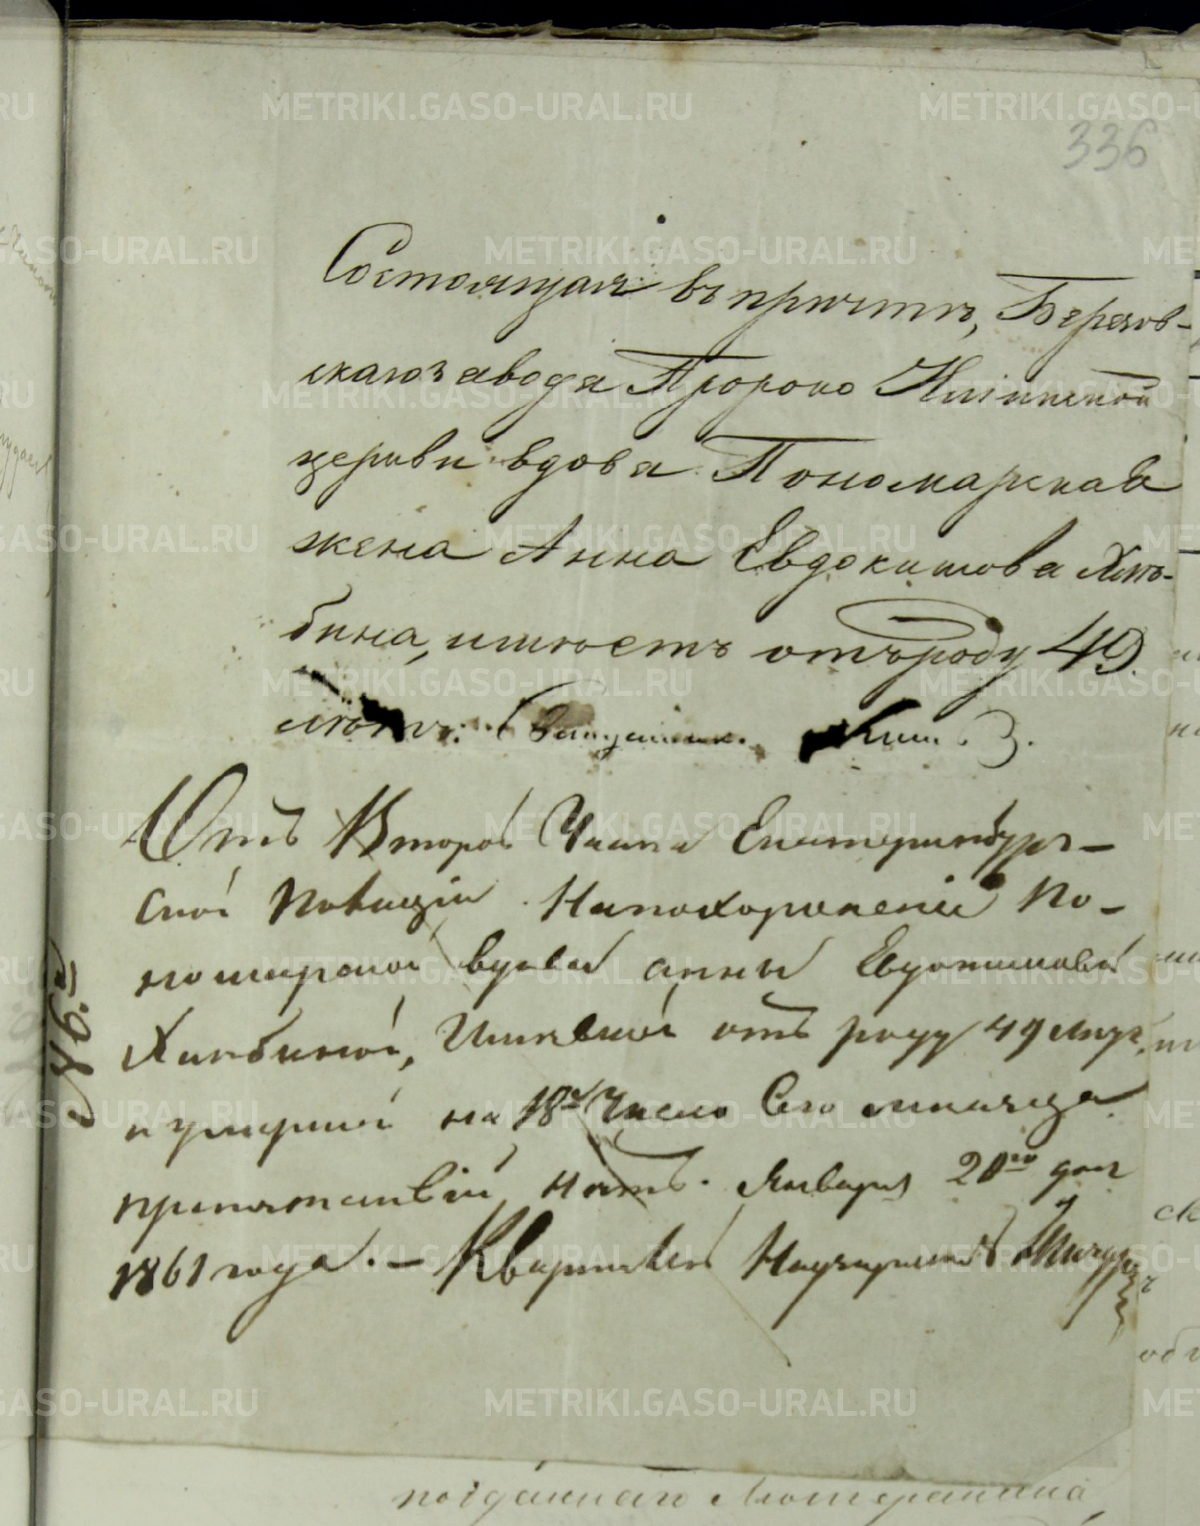 336
Состоящая въ причтѣ, Березов-
скаго завода Пророко Илiинской
церкви вдова Пономарская
жена Анна Евдокимова Хлѣ-
бина, имѣетъ отъ роду 49
лѣтъ.
Отъ Второй Части Екатеринбург-
ской Полиціи На похороненіе По-
номарской вдовы анны Евдокимовой
Хлѣбиной, Имѣвшей отъ роду 49 лѣтъ,
и умершей на 18е Число Сего месяца
препятствій нѣтъ. Января 20го дня
1861 года. — Квартальный Надзиратель
поіданнаго Лютеранина
METRIKI.GASO-URAL.RU